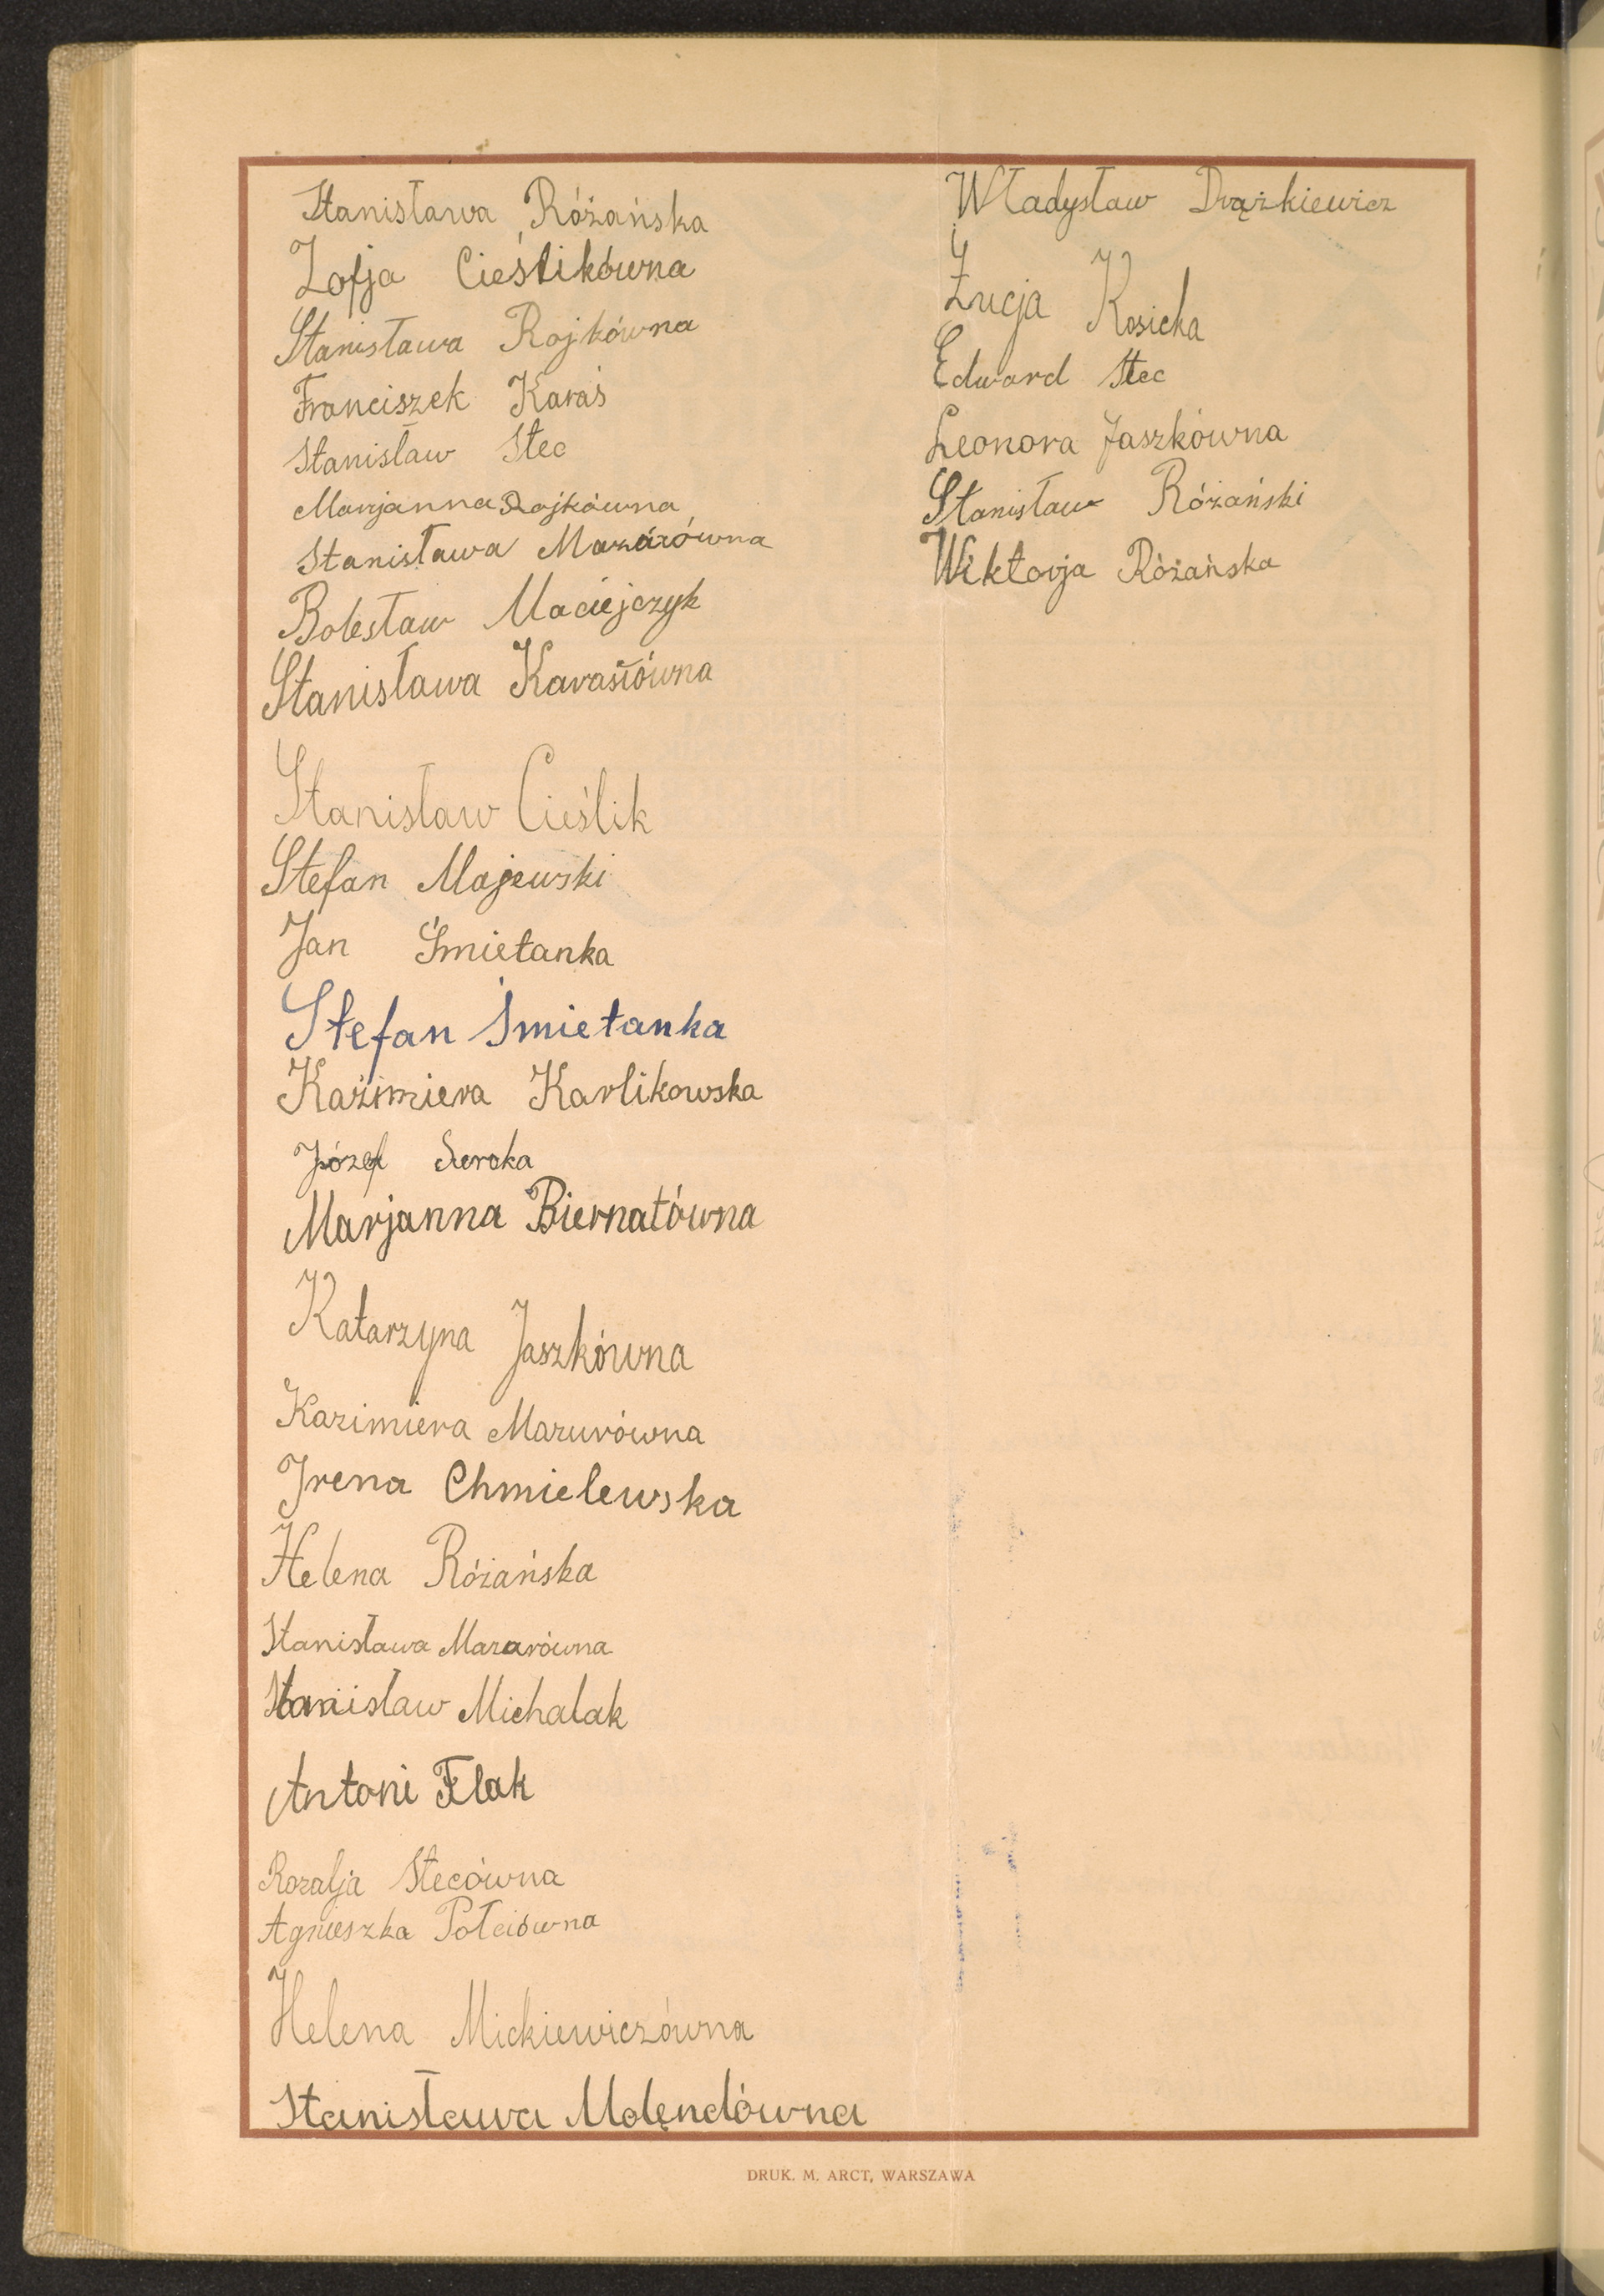 Stanisława Różańska
Zofja Cieślikówna
Stanisława Rojkówna
Franciszek Karaś
Stanisław Stec
Marjanna Rojkówna
Stanisława Mazurówna
Bolesław Maciejczyk
Stanisława Karasiówna
Stanisław Cieślik
Stefan Majewski
Jan Śmietanka
Stefan Śmietanka
Kazimiera Karlikowska
Józef Seroka
Marjanna Biernatówna
Katarzyna Jaszkówna
Kazimiera Mazurówna
Irena Chmielewska
Helena Różańska
Stanisława Mazurówna
Stanisław Michalak
Antoni Flak
Rozalja Stecówna
Agnieszka Połciówna
Helena Mickiewiczówna
Stanisława Molęndówna
Władysław Drążkiewicz
Łucja Kosicka
Edward Stec
Leonora Jaszkówna
Stanisław Różański
Wiktorja Różańska
DRUK. M. ARCT, WARSZAWA